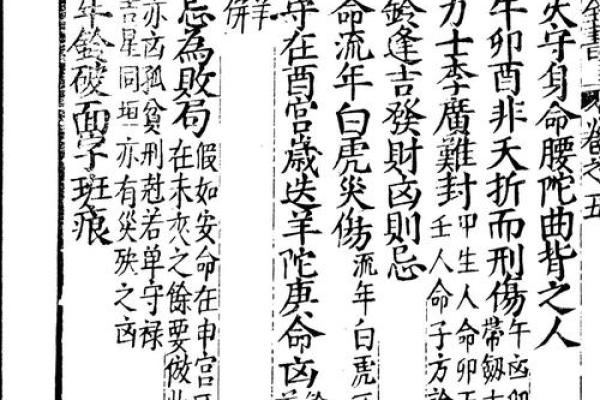 書卷之五
守身命腰陀曲背之人
午卯酉非夭折而刑傷
午凶卯
帶劔
力士李廣難封
甲生人命卯
壬人命子方論
鈴逢吉發財凶則忌
命流年白虎災傷
流年白虎
守在酉宮歲迭羊陀庚命凶
羊
併
忌為敗局
假如安命在申宮
在未亥之餘要倣此
亦凶孤貧刑尅若单守禄
吉星同垣亦有災殃之凶
羊鈴破面字斑痕